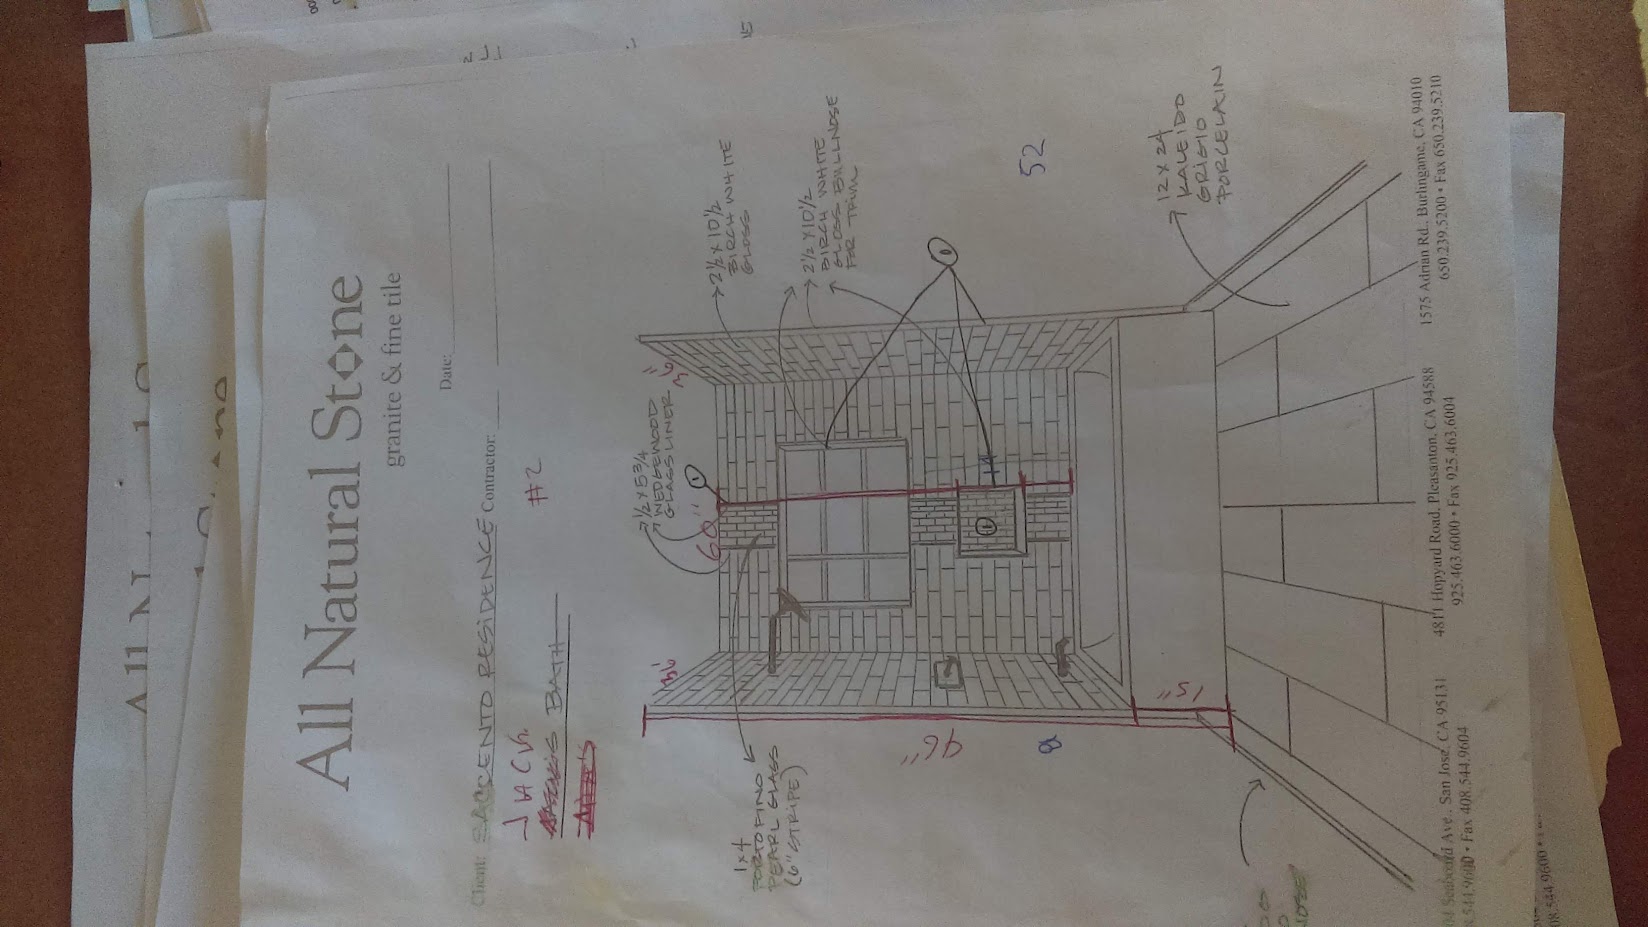 All Natural S
l Stone
All Natural Stone
granite & fine tile
Date:
Client: SACCENTO RESIDENCE Contractor:
JACK
BATH
#2
1/2 x 5 3/4
WEDGEWOOD
GLASS LINER
36"
36"
60"
1
1x4
PORTOFINO
PEARL GLASS
(6" STRIPE)
2 1/2 x 10 1/2
BIRCH WHITE
GLOSS
2 1/2 x 10 1/2
BIRCH WHITE
GLOSS BULLNOSE
FOR TRIM
96"
1
1
14
52
15"
12 x 24
KALEIDO
GRIGIO
PORCELAIN
Seaboard Ave., San Jose, CA 95131
.544.9600 • Fax 408.544.9604
4811 Hopyard Road, Pleasanton, CA 94588
925.463.6000 • Fax 925.463.6004
1575 Adrian Rd., Burlingame, CA 94010
650.239.5200 • Fax 650.239.5210
08.544.9600 •